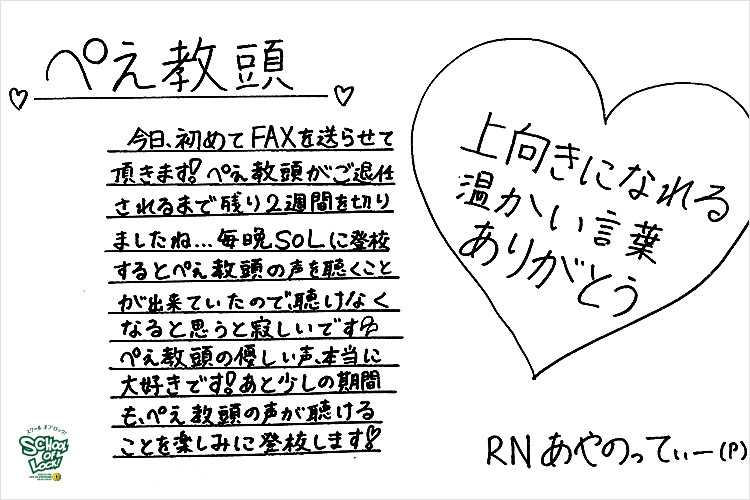 ぺえ教頭
今日、初めてFAXを送らせて
頂きます!ぺえ教頭がご退任
されるまで残り2週間を切り
ましたね...毎晩SOLに登校
するとぺえ教頭の声を聴くこと
が出来ていたので、聴けなく
なると思うと寂しいです
ぺえ教頭の優しい声、本当に
大好きです!あと少しの期間
も、ぺえ教頭の声が聴ける
ことを楽しみに登校します♡
上向きになれる
温かい言葉
ありがとう
RN あやのってぃー(P)
スクール オブ ロック!
SCHOOL
OF
LOCK!